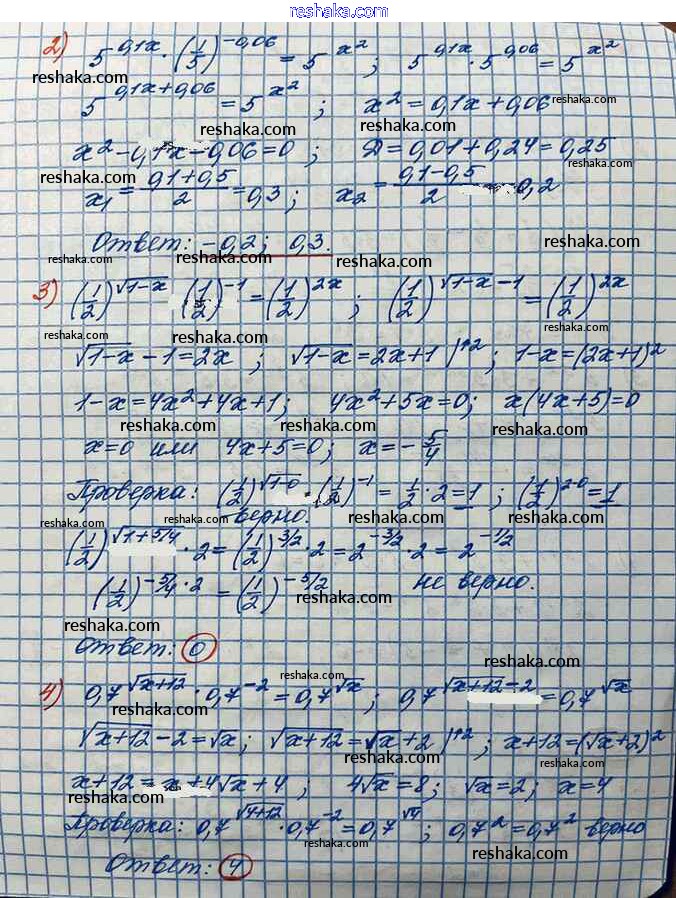 reshaka.com
2) 5^{0,1x} · (1/5)^{-0,06} = 5^{x^2} ; 5^{0,1x} · 5^{0,06} = 5^{x^2}
reshaka.com reshaka.com
5^{0,1x+0,06} = 5^{x^2} ; x^2 = 0,1x + 0,06
reshaka.com
reshaka.com reshaka.com
x^2 - 0,1x - 0,06 = 0 ; D = 0,01 + 0,24 = 0,25
reshaka.com reshaka.com
x_1 = (0,1+0,5)/2 = 0,3 ; x_2 = (0,1-0,5)/2 0,2
reshaka.com reshaka.com
Ответ: -0,2; 0,3.
reshaka.com reshaka.com reshaka.com
reshaka.com
3) (1/2)^{√(1-x)} (1/2)^{-1} = (1/2)^{2x} ; (1/2)^{√(1-x) - 1} = (1/2)^{2x}
reshaka.com reshaka.com reshaka.com
√(1-x) - 1 = 2x ; √(1-x) = 2x+1 |↑2 ; 1-x = (2x+1)^2
reshaka.com
1-x = 4x^2+4x+1; 4x^2+5x=0; x(4x+5)=0
reshaka.com reshaka.com reshaka.com
x=0 или 4x+5=0; x = -5/4
reshaka.com
Проверка: (1/2)^{√(1-0)} · (1/2)^{-1} = 1/2 · 2 = 1 ; (1/2)^{2·0} = 1
reshaka.com reshaka.com
верно.
reshaka.com reshaka.com reshaka.com
(1/2)^{√(1+5/4)} · 2 = (1/2)^{3/2} · 2 = 2^{-3/2} · 2 = 2^{-1/2}
(1/2)^{-5/4 · 2} = (1/2)^{-5/2} не верно.
reshaka.com
reshaka.com
Ответ: 0
reshaka.com reshaka.com
4) 0,7^{√(x+12)} · 0,7^{-2} = 0,7^{√x} ; 0,7^{√(x+12) - 2} = 0,7^{√x}
reshaka.com reshaka.com
√(x+12) - 2 = √x; √(x+12) = √x + 2 |↑2 ; x+12 = (√x+2)^2
reshaka.com reshaka.com reshaka.com
x+12 = x+4√x+4 ; 4√x = 8; √x = 2; x = 4
reshaka.com reshaka.com
Проверка: 0,7^{√(4+12)} · 0,7^{-2} = 0,7^{√4} ; 0,7^2 = 0,7^2 верно
reshaka.com reshaka.com reshaka.com
Ответ: 4
reshaka.com
reshaka.com